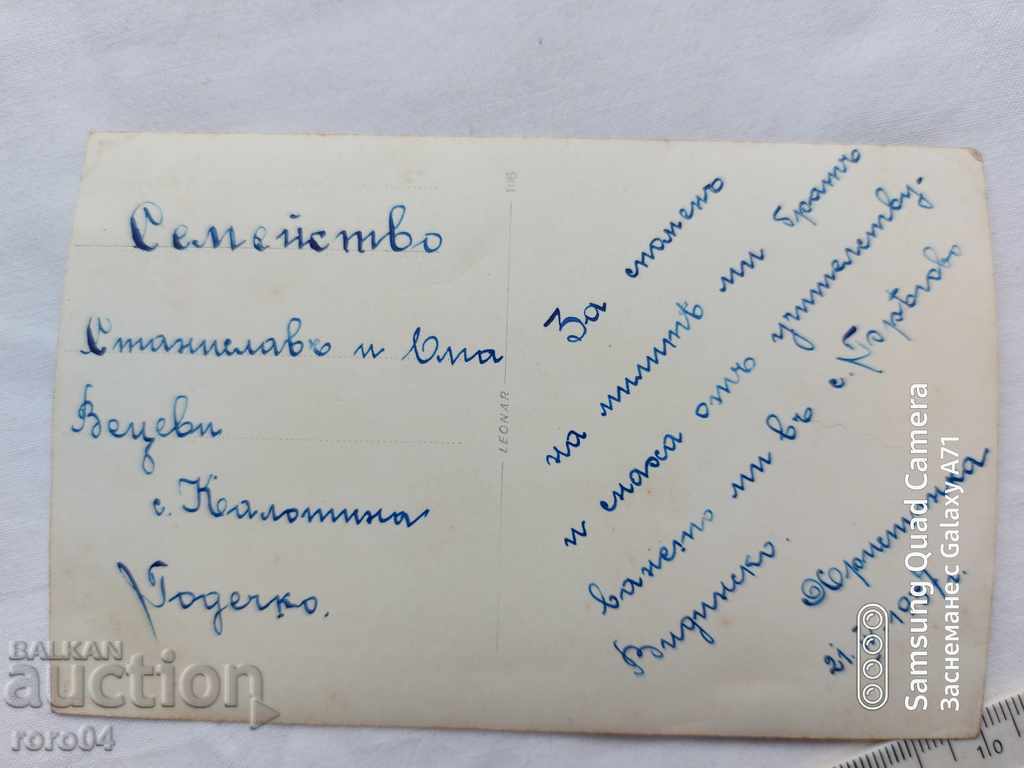 Семейство
Станиславъ и Ома
Вецеви
с. Калотина
Годечко.
LEONAR
За споменъ
на милитѣ ми братъ
и снаха отъ учителству-
ването ми въ с. Гърѣгово
Видинско.
Христинка
21.
BALKAN
auction
roro04
Samsung Quad Camera
Заснеманес Galaxy A71
10